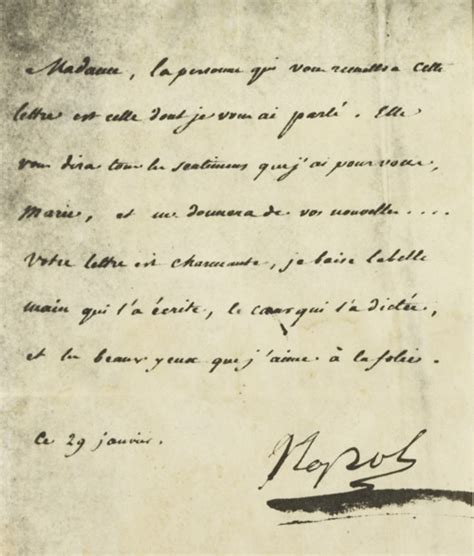 Madame, la personne qui vous remettra cette
lettre est celle dont je vous ai parlé. Elle
vous dira tous les sentimens que j'ai pour vous,
Marie, et me donnera de vos nouvelles....
Votre lettre est charmante, je baise la belle
main qui l'a écrite, le cœur qui l'a dictée,
et les beaux yeux que j'aime à la folie.
Ce 29 janvier.
Napol